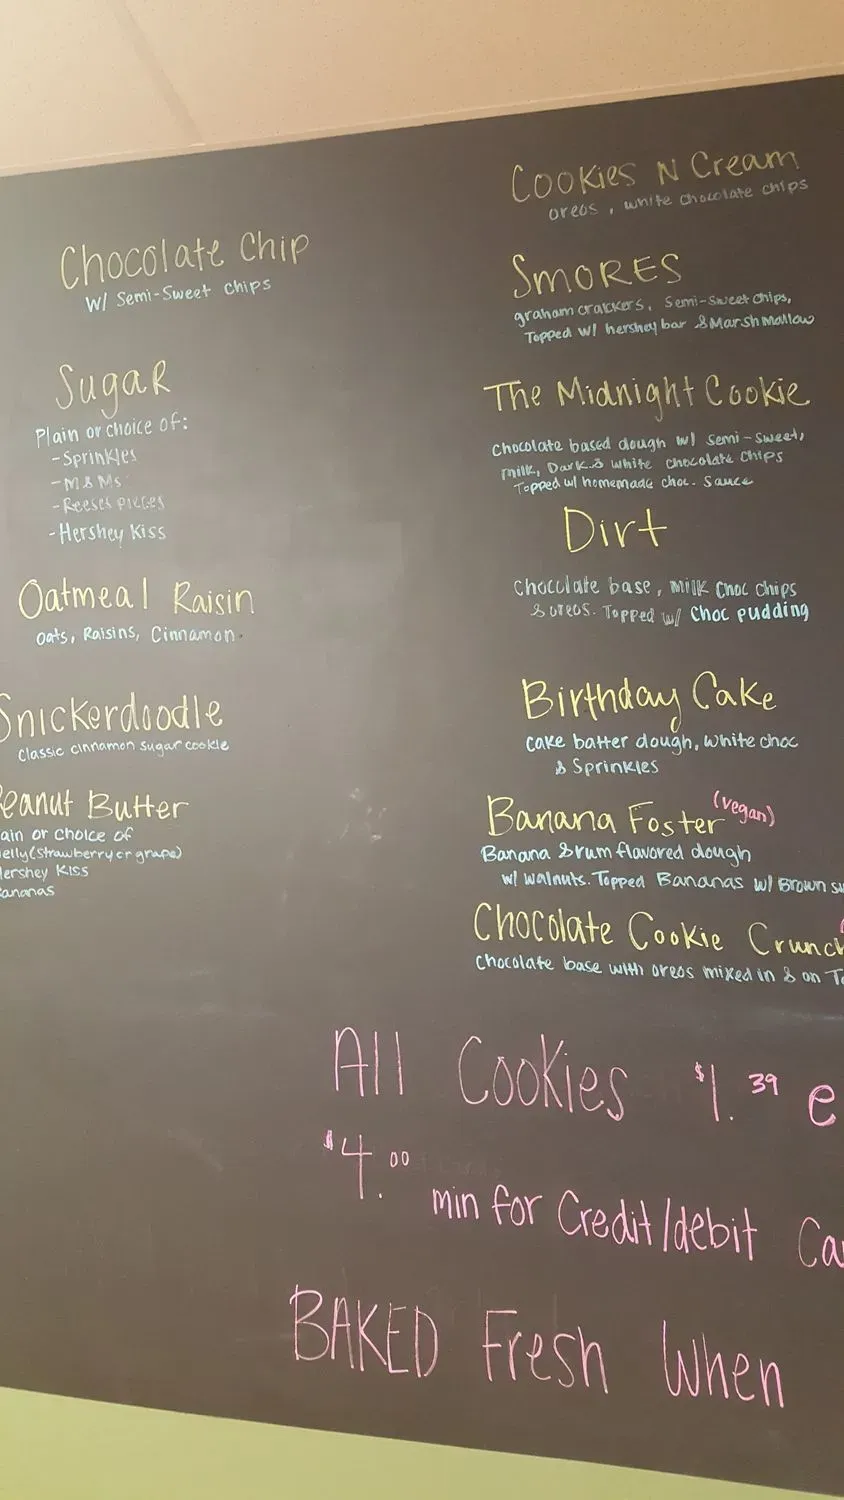 Chocolate Chip
w/ Semi-Sweet chips
Sugar
Plain or choice of:
- Sprinkles
- M&Ms
- Reeses pieces
- Hershey Kiss
Oatmeal Raisin
oats, Raisins, Cinnamon.
Snickerdoodle
Classic cinnamon sugar cookie
eanut Butter
ain or choice of
elly (strawberry or grape)
ershey Kiss
ananas
Cookies N Cream
oreos, white chocolate chips
SmORES
graham crackers, Semi-sweet chips,
Topped w/ hershey bar & Marshmallow
The Midnight Cookie
Chocolate based dough w/ semi-sweet,
milk, Dark & white chocolate chips
Topped w/ homemade choc. sauce
Dirt
Chocolate base, milk choc chips
& oreos. Topped w/ Choc pudding
Birthday Cake
cake batter dough, white choc
& Sprinkles
Banana Foster (vegan)
Banana & rum flavored dough
w/ walnuts. Topped Bananas w/ Brown su
Chocolate Cookie Crunch
Chocolate base with oreos mixed in & on To
All Cookies $1.39 e
$4.00 min for Credit/debit Ca
BAKED Fresh When